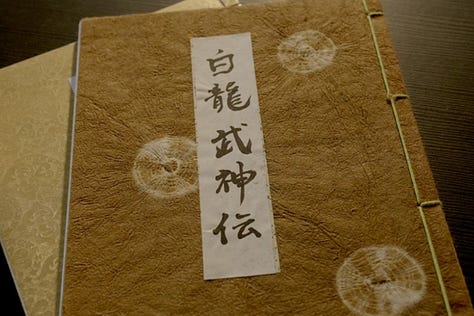 白龍武神伝